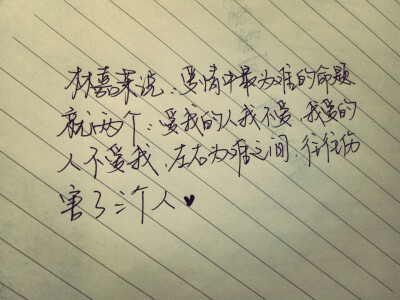 林嘉莱说：爱情中最为难的命题
就这两个：爱我的人我不爱，我爱的
人不爱我，左右为难之间，往往伤
害了三个人♥